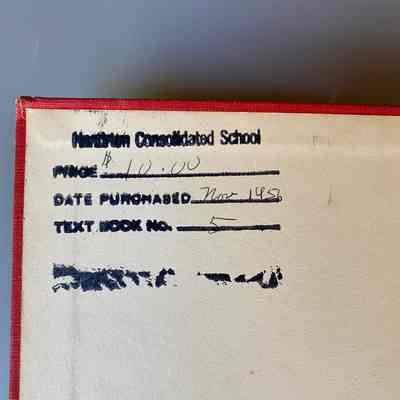 Consolidated School
PRICE $10.00
DATE PURCHASED Nov 1956
TEXT BOOK NO. 5